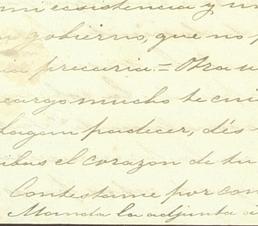 mi ecsistencia y un
gobierno, que no p
precaria = Otra v
cargo mucho te cui
hagan padecer, dés-
ibas el corazon de tu
Contestame por con
Manda la adjunta á